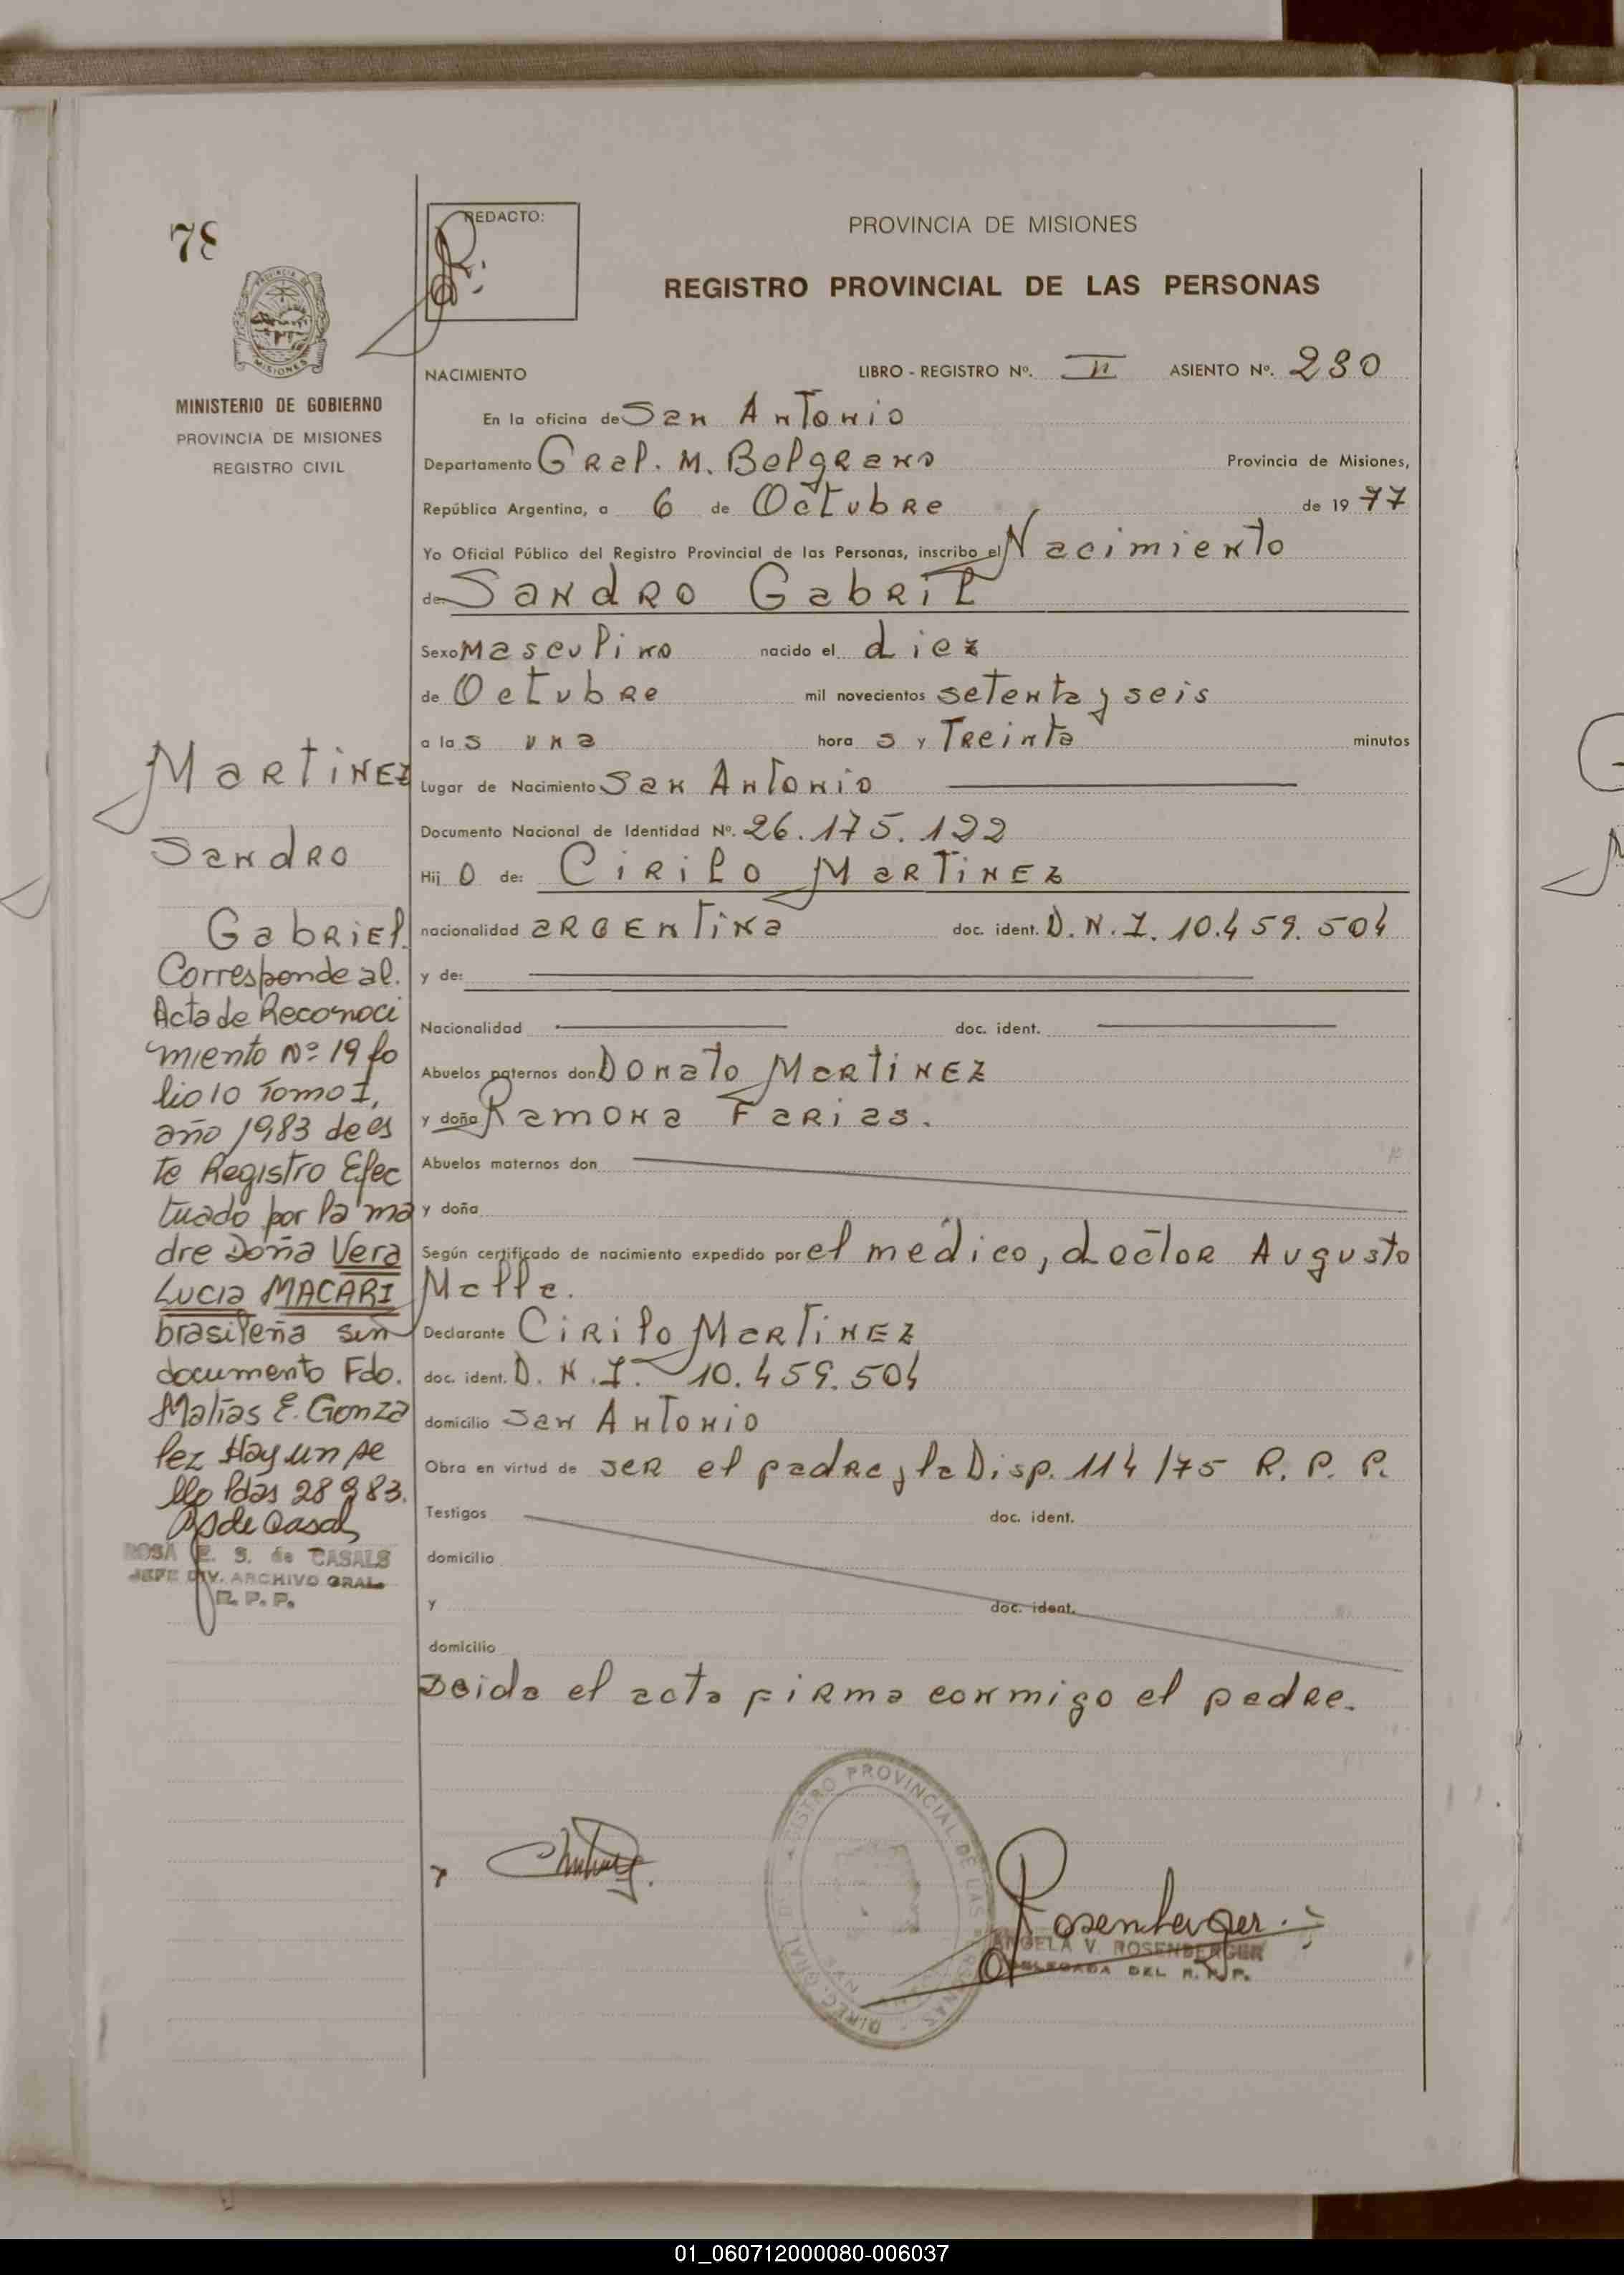 78
REDACTO:
PROVINCIA DE MISIONES
REGISTRO PROVINCIAL DE LAS PERSONAS
MINISTERIO DE GOBIERNO
PROVINCIA DE MISIONES
REGISTRO CIVIL
NACIMIENTO LIBRO - REGISTRO Nº. II ASIENTO Nº. 230
En la oficina de San Antonio
Departamento Gral. M. Belgrano Provincia de Misiones,
República Argentina, a 6 de Octubre de 1977
Yo Oficial Público del Registro Provincial de las Personas, inscribo el Nacimiento
de: Sandro Gabril
Sexo Masculino nacido el diez
de Octubre mil novecientos setenta y seis
a las una hora s y Treinta minutos
Lugar de Nacimiento San Antonio
Documento Nacional de Identidad Nº. 26.175.122
Hijo de: Cirilo Martinez
nacionalidad argentina doc. ident. D.N.I. 10.459.504
y de:
Nacionalidad doc. ident.
Abuelos paternos don Donato Martinez
y doña Ramona Farias.
Abuelos maternos don
y doña
Según certificado de nacimiento expedido por el médico, doctor Augusto
Malle.
Declarante Cirilo Martinez
doc. ident. D.N.I. 10.459.504
domicilio San Antonio
Obra en virtud de ser el padre y la Disp. 114/75 R.P.P.
Testigos doc. ident.
domicilio
y doc. ident.
domicilio
Leida el acta firma conmigo el padre.
Martinez
Sandro
Gabriel.
Corresponde al.
Acta de Reconoci
miento Nº 19 fo
lio 10 Tomo I,
año 1983 de es
te Registro Efec
tuado por la ma
dre Doña Vera
Lucia MACARI
brasileña sin
documento Fdo.
Matías E. Gonza
lez Hay un se
llo Pdas 28 9 83.
ROSA E. S. de CASALS
JEFE DIV. ARCHIVO GRAL.
R. P. P.
Rosenberger
ANGELA V. ROSENBERGER
DELEGADA DEL R. P. P.
01_060712000080-006037